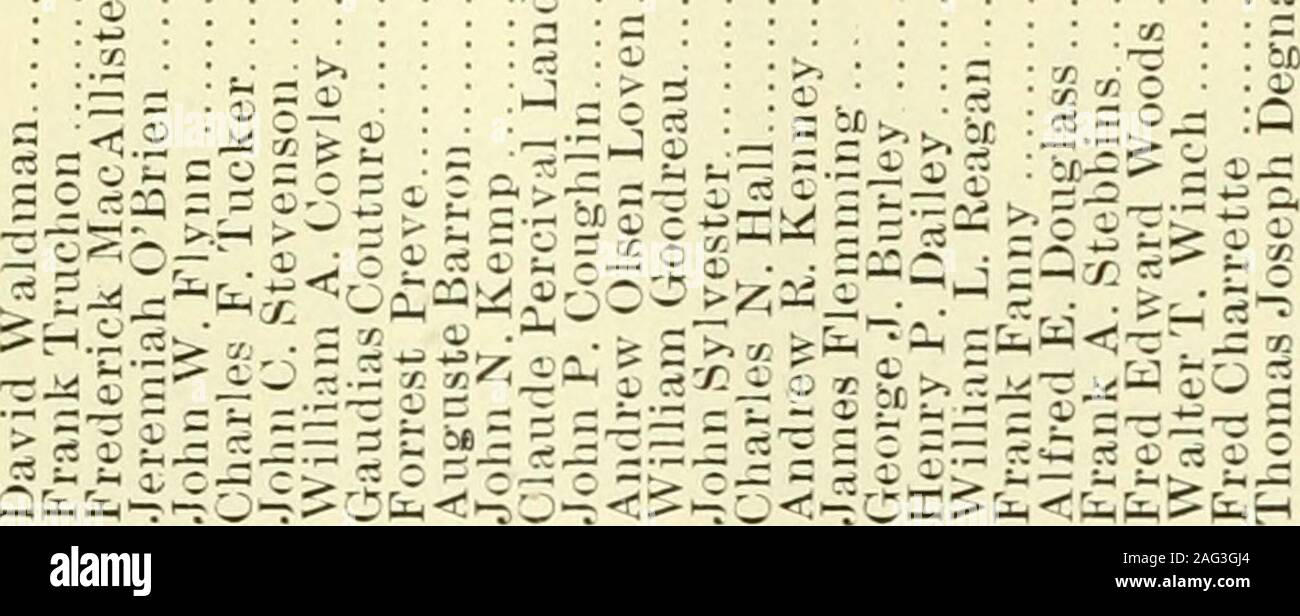 David Waldman....
Frank Truchon......
Frederick MacAlliste
Jeremiah O'Brien......
John W. Flynn......
Charles F. Tucker....
John C. Stevenson....
William A. Cowley...
Gaudias Couture......
Forrest Preve.........
Auguste Barron.......
John N. Kemp.......
Claude Percival Land
John P. Coughlin.....
Andrew Olsen Loven.
William Goodreau....
John Sylvester........
Charles N. Hall.......
Andrew R. Kenney...
James Flemming....
George J. Burley.....
Henry P. Dailey......
William L. Reagan...
Frank Fanny........
Alfred E. Douglass...
Frank A. Stebbins....
Fred Edward Woods..
Walter T. Winch.....
Fred Charrette......
Thomas Joseph Degna
alamy
Image ID: 2AG3GJ4
www.alamy.com